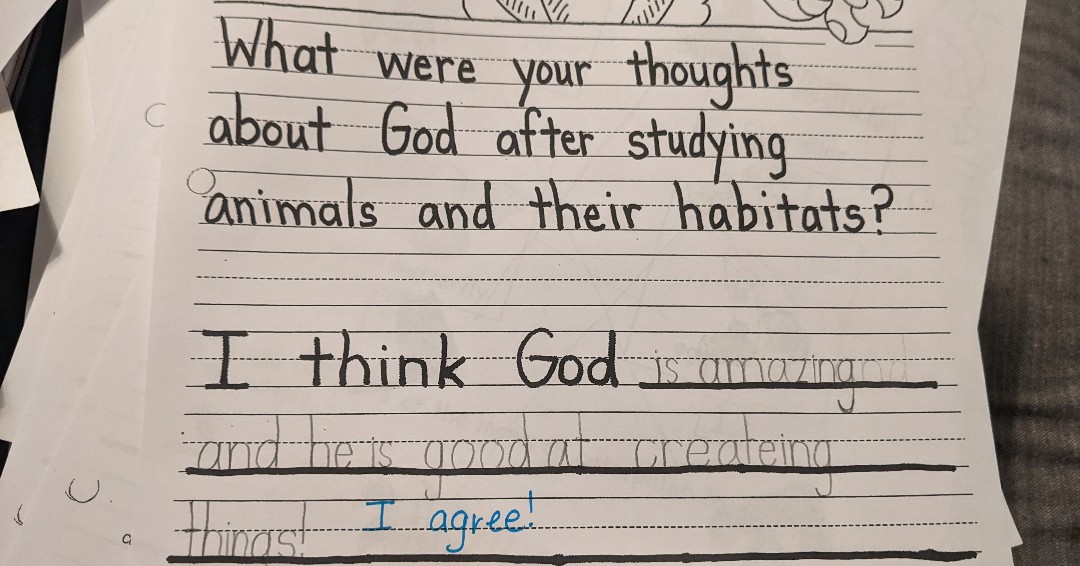 What were your thoughts
about God after studying
animals and their habitats?
I think God is amazing
and he is good at createing
things! I agree!